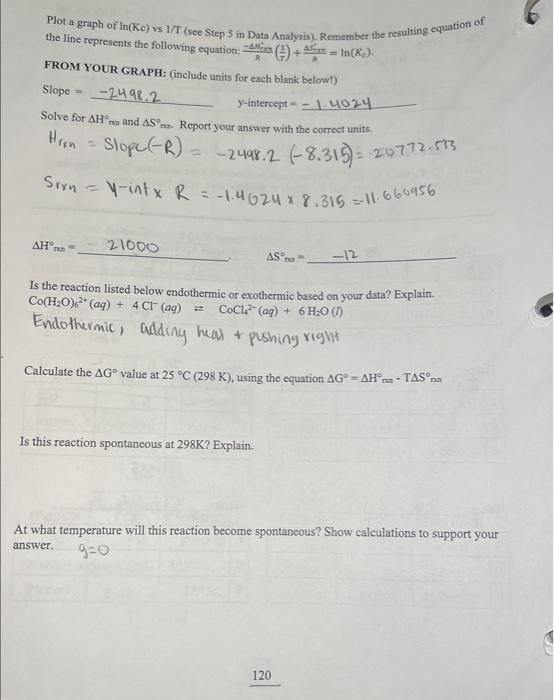 Plot a graph of ln(Kc) vs 1/T (see Step 5 in Data Analysis). Remember the resulting equation of
the line represents the following equation: -ΔH°rxn/R (1/T) + ΔS°rxn/R = ln(Kc).
FROM YOUR GRAPH: (include units for each blank below!)
Slope = -2498.2 y-intercept = -1.4024
Solve for ΔH°rxn and ΔS°rxn. Report your answer with the correct units.
Hrxn = Slope(-R) = -2498.2 (-8.315) = 20772.533
Srxn = y-int x R = -1.4024 x 8.315 = -11.660956
ΔH°rxn = 21000 ΔS°rxn = -12
Is the reaction listed below endothermic or exothermic based on your data? Explain.
Co(H₂O)₆²⁺ (aq) + 4 Cl⁻ (aq) ⇌ CoCl₄²⁻ (aq) + 6 H₂O (l)
Endothermic, adding heat + pushing right
Calculate the ΔG° value at 25 °C (298 K), using the equation ΔG° = ΔH°rxn - TΔS°rxn
Is this reaction spontaneous at 298K? Explain.
At what temperature will this reaction become spontaneous? Show calculations to support your
answer. g=0
120